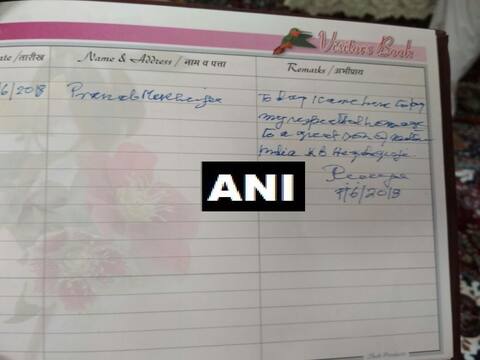 Visitor's Book
ate / तारीख Name & Address / नाम व पत्ता Remarks / अभीप्राय
/6/2018 Pranab Mukherjee To day I came here to pay
my respect and homage
to a great son of
India K B Hedgewar
7/6/2018
ANI